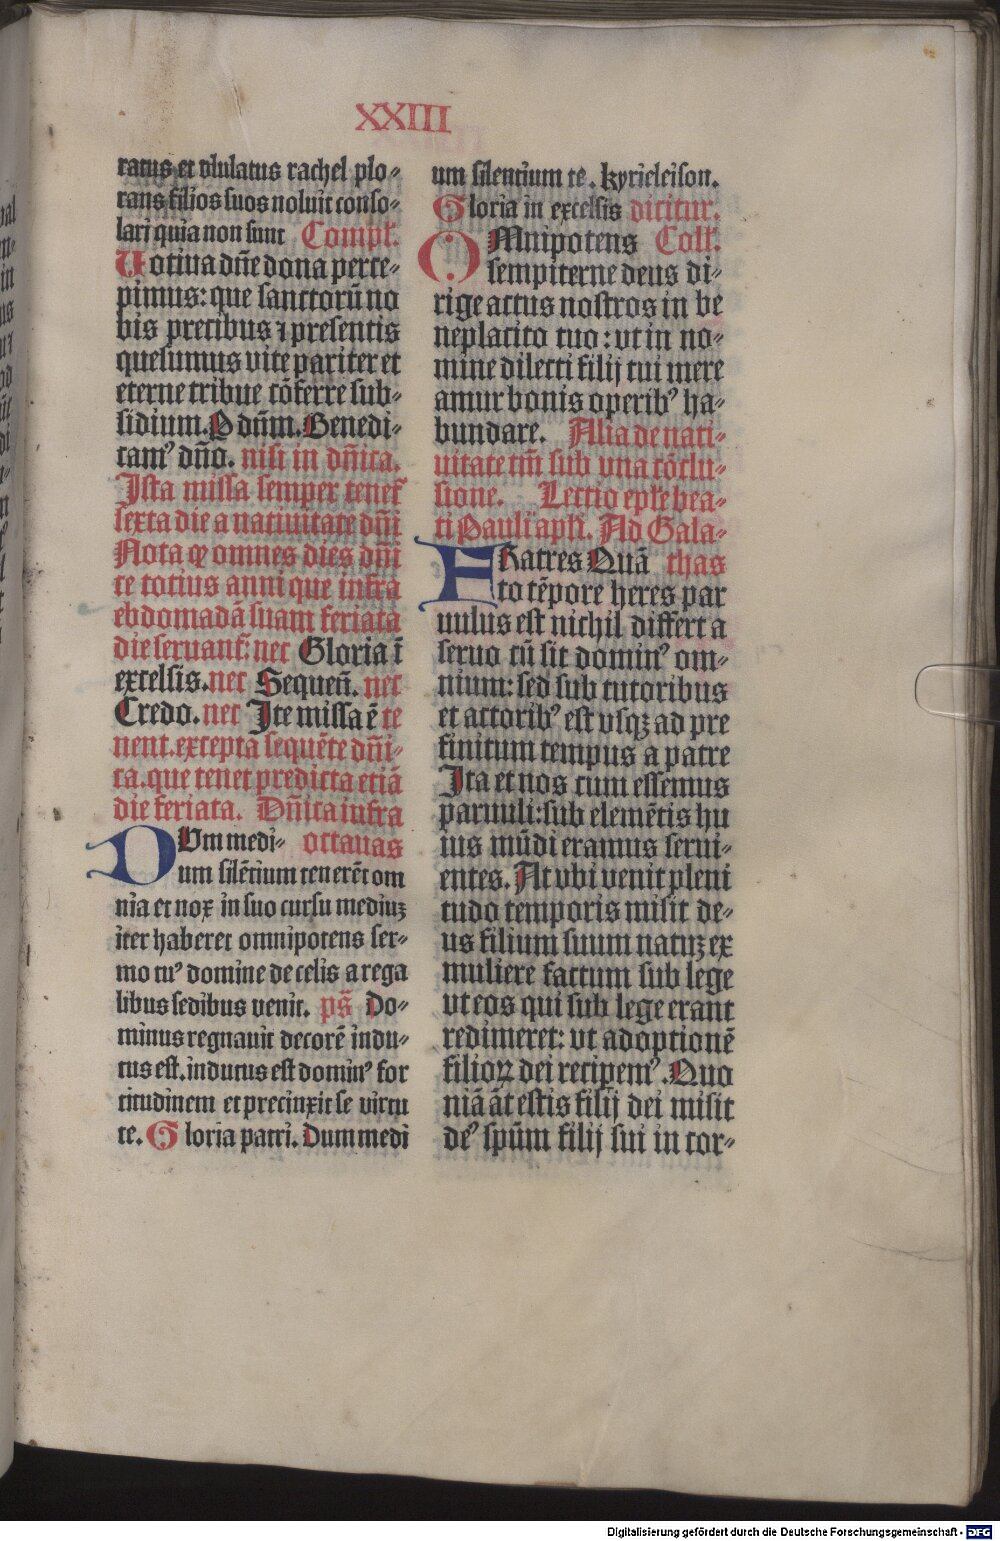 XXIII
ratus et vlulatus rachel plo-
rans filios suos noluit conso-
lari quia non sunt Compl̄.
Uotiua dn̄e dona perce-
pimus: que sanctorū no
bis precibus ⁊ presentis
quesumus vite pariter et
eterne tribue cōferre sub-
sidium. P dn̄m. Benedi-
camꝰ dn̄o. nisi in dn̄ica.
Ista missa semper tenet̄
sexta die a natiuitate dn̄i
Nota ꝙ omnes dies dn̄i
ce totius anni que infra
ebdomadā suam feriata
die seruant̄: nec Gloria ī
excelsis. nec Sequen̄. nec
Credo. nec Ite missa ē te
nent. excepta sequēte dn̄i-
ca. que tenet predicta etiā
die feriata. Dn̄ica infra
DUm medi- octauas
um silētium tenerēt om
nia et nox in suo cursu mediuꝫ
iter haberet omnipotens ser-
mo tuꝰ domine de celis a rega
libus sedibus venit. ps̄ Do-
minus regnauit decorē indu-
tus est. indutus est dominꝰ for
titudinem et precinxit se virtu
te. Gloria patri. Dum medi
um silentium te. kyrieleison.
Gloria in excelsis dicitur.
OMnipotens Coll̄.
sempiterne deus di-
rige actus nostros in be
neplacito tuo: vt in no-
mine dilecti filij tui mere
amur bonis operibꝰ ha-
bundare. Alia de nati-
uitate tm̄ sub vna cōclu-
sione. Lectio ep̄le bea-
ti Pauli ap̄li. Ad Gala-
FRatres Quā thas
to tēpore heres par
uulus est nichil differt a
seruo cū sit dominꝰ om-
nium: sed sub tutoribus
et actoribꝰ est vsqꝫ ad pre
finitum tempus a patre
Ita et nos cum essemus
paruuli: sub elemētis hu
ius mūdi eramus serui-
entes. At vbi venit pleni
tudo temporis misit de-
us filium suum natuꝫ ex
muliere factum sub lege
vt eos qui sub lege erant
redimeret: vt adoptionē
filioꝝ dei recipemꝰ. Quo
niā āt estis filij dei misit
deꝰ spūm filij sui in cor-
Digitalisierung gefördert durch die Deutsche Forschungsgemeinschaft - DFG